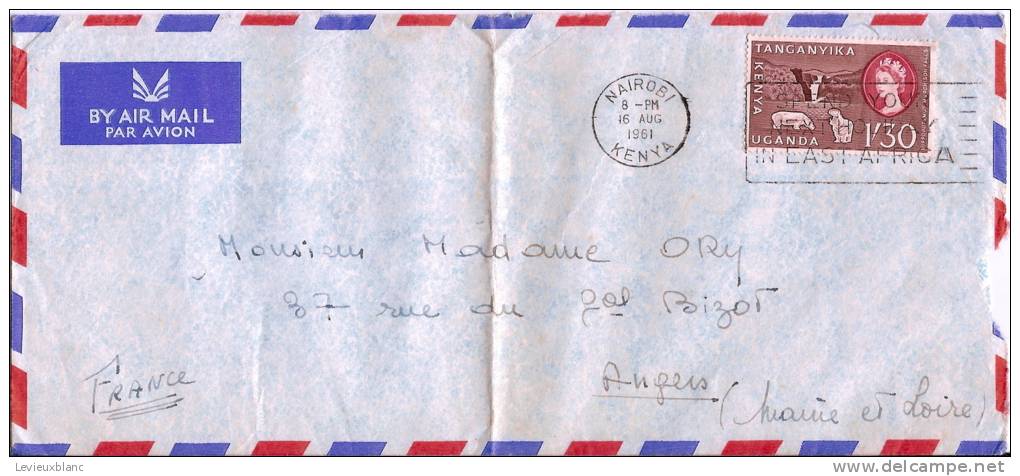 BY AIR MAIL
PAR AVION
NAIROBI
8 - PM
16 AUG
1961
KENYA
TANGANYIKA
KENYA
UGANDA
1'30
IN EAST AFRICA
Monsieur Madame ORY
37 rue du Gal Bizot
Angers
(Maine et Loire)
FRANCE
Levieuxblanc
©delcampe.net